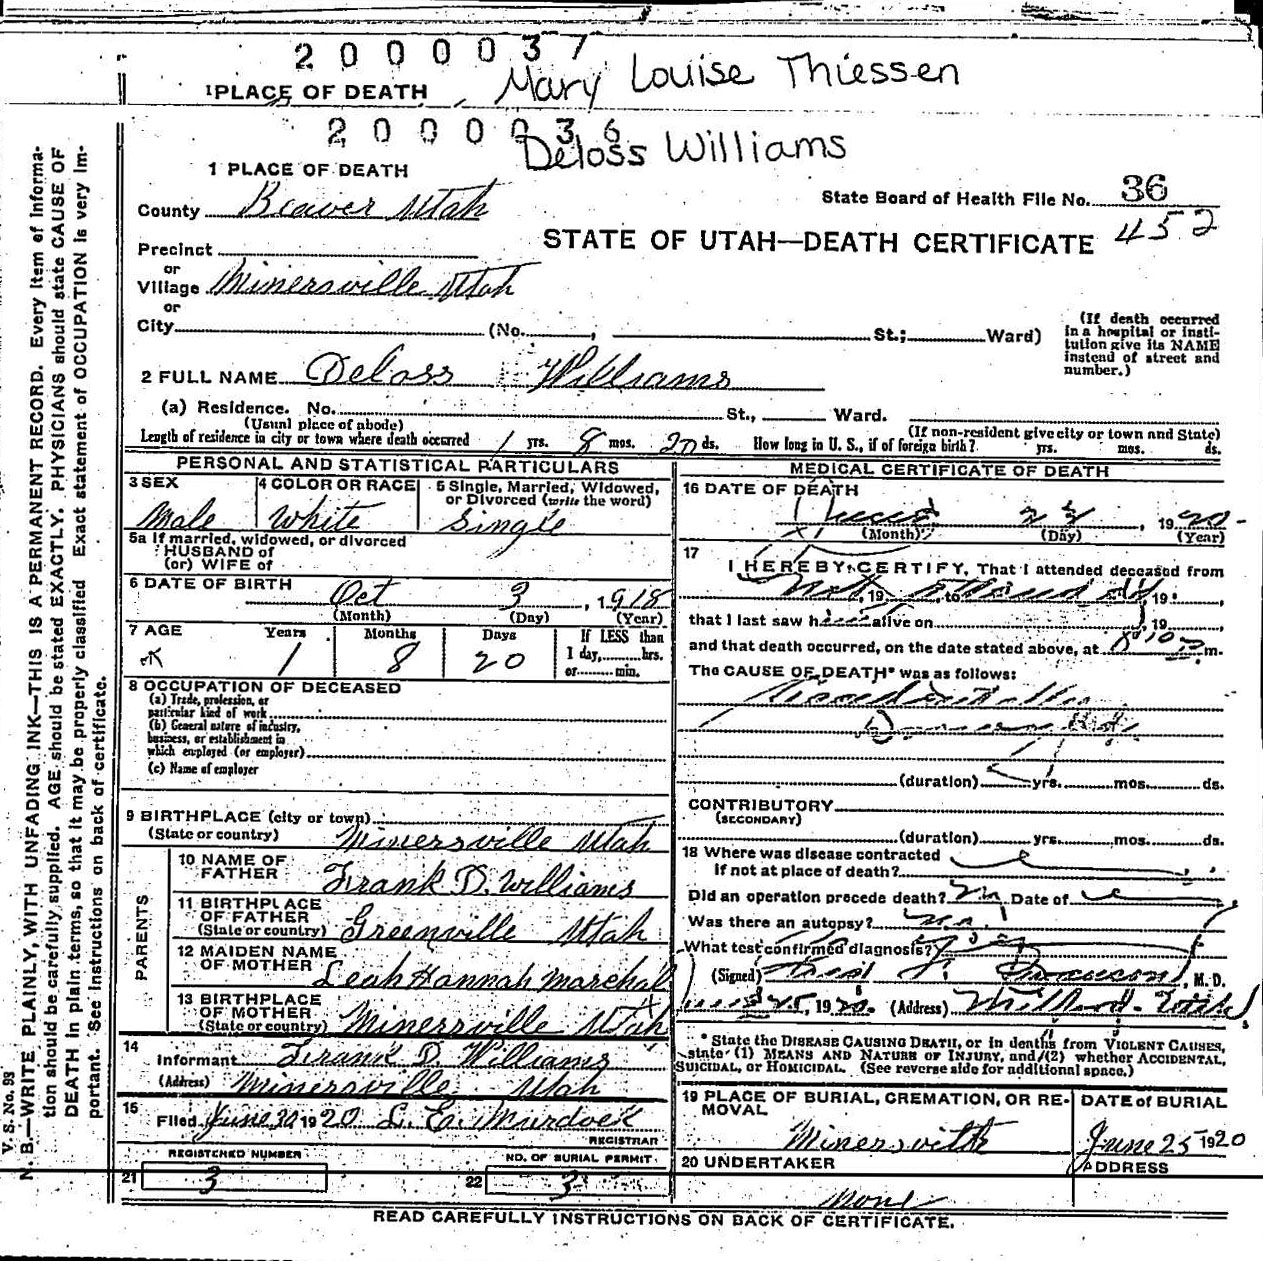 2000037
Mary Louise Thiessen
1PLACE OF DEATH
2000036
Deloss Williams
1 PLACE OF DEATH
State Board of Health File No. 36
County Beaver Utah
452
STATE OF UTAH—DEATH CERTIFICATE
Precinct
or
Village Minersville Utah
or
City (No. , St.; Ward)
(If death occurred in a hospital or insti-tution give its NAME instead of street and number.)
2 FULL NAME Deloss Williams
(a) Residence. No. St., Ward.
(Usual place of abode) (If non-resident give city or town and State)
Length of residence in city or town where death occurred 1 yrs. 8 mos. 20 ds. How long in U. S., if of foreign birth? yrs. mos. ds.
PERSONAL AND STATISTICAL PARTICULARS
3 SEX 4 COLOR OR RACE 5 Single, Married, Widowed, or Divorced (write the word)
Male White Single
5a If married, widowed, or divorced
HUSBAND of
(or) WIFE of
6 DATE OF BIRTH
Oct 3, 1918
(Month) (Day) (Year)
7 AGE Years Months Days If LESS than
1 day, hrs.
or min.
1 8 20
8 OCCUPATION OF DECEASED
(a) Trade, profession, or
particular kind of work
(b) General nature of industry,
business, or establishment in
which employed (or employer)
(c) Name of employer
9 BIRTHPLACE (city or town)
(State or country) Minersville Utah
PARENTS
10 NAME OF FATHER Frank D. Williams
11 BIRTHPLACE OF FATHER (State or country) Greenville Utah
12 MAIDEN NAME OF MOTHER Leah Hannah Marshall
13 BIRTHPLACE OF MOTHER (State or country) Minersville Utah
14
Informant Frank D. Williams
(Address) Minersville Utah
15
Filed June 30 1920 L. E. Murdock
REGISTRAR
REGISTERED NUMBER NO. OF BURIAL PERMIT
21 3 22 3
MEDICAL CERTIFICATE OF DEATH
16 DATE OF DEATH
June 23, 1920
(Month) (Day) (Year)
17
I HEREBY CERTIFY, That I attended deceased from
Not, 19 , to , 19 ,
that I last saw h alive on , 19 ,
and that death occurred, on the date stated above, at m.
The CAUSE OF DEATH* was as follows:
(duration) yrs. mos. ds.
CONTRIBUTORY
(SECONDARY)
(duration) yrs. mos. ds.
18 Where was disease contracted
if not at place of death?
Did an operation precede death? No Date of
Was there an autopsy? No
What test confirmed diagnosis?
(Signed) , M. D.
June 25, 1920. (Address) Milford - Utah
* State the DISEASE CAUSING DEATH, or in deaths from VIOLENT CAUSES,
state (1) MEANS AND NATURE OF INJURY, and (2) whether ACCIDENTAL,
SUICIDAL, or HOMICIDAL. (See reverse side for additional space.)
19 PLACE OF BURIAL, CREMATION, OR RE-MOVAL DATE of BURIAL
Minersville June 25 1920
20 UNDERTAKER ADDRESS
None
READ CAREFULLY INSTRUCTIONS ON BACK OF CERTIFICATE.
V. S. No. 93
N. B.—WRITE PLAINLY, WITH UNFADING INK—THIS IS A PERMANENT RECORD. Every item of informa-
tion should be carefully supplied. AGE should be stated EXACTLY. PHYSICIANS should state CAUSE OF
DEATH in plain terms, so that it may be properly classified. Exact statement of OCCUPATION is very im-
portant. See instructions on back of certificate.